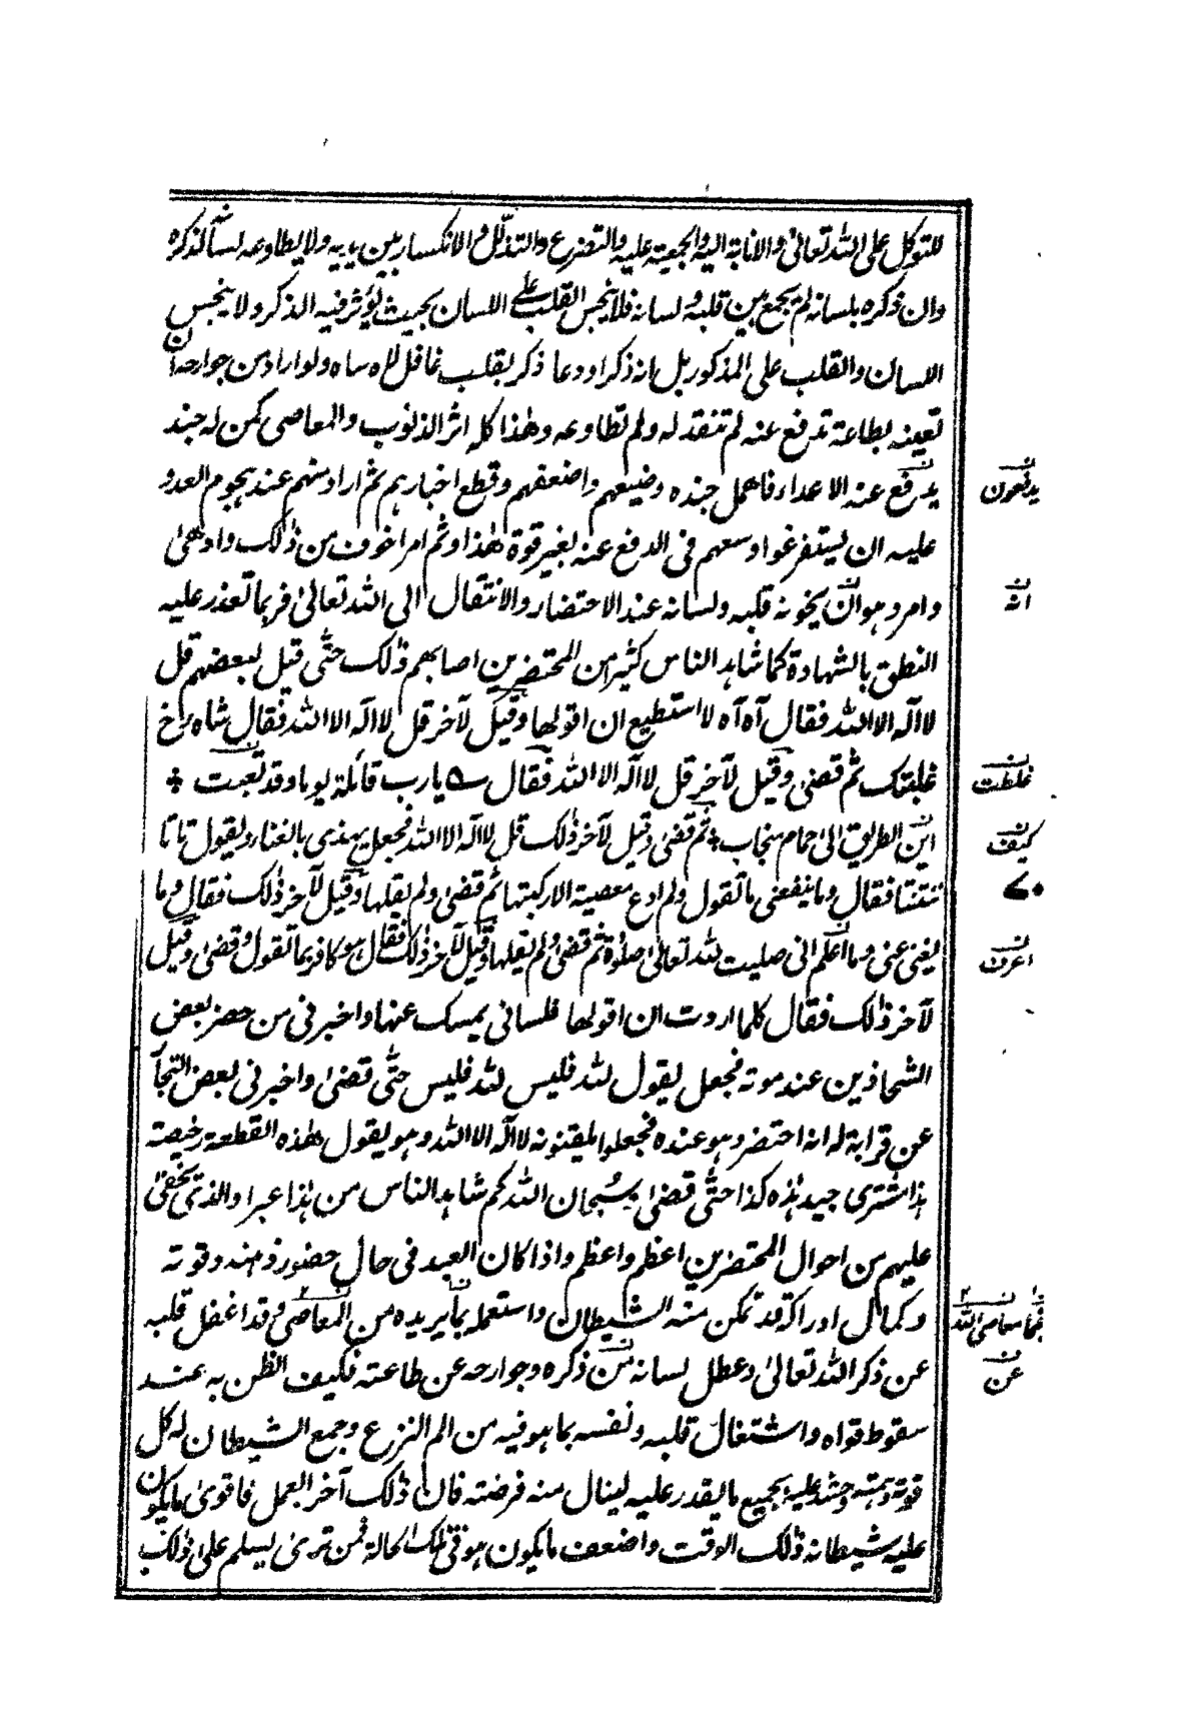 للتوكل على الله تعالىٰ والانابة اليه والجمعية عليه والتضرع والتذلل والانكسار بين يديه ولا يطاوعه لسانه لذكره
وان ذكره بلسانه لم يجمع بين قلبه ولسانه فلا ينحبس القلب على اللسان بحيث يؤثر فيه الذكر ولا ينحبس
اللسان والقلب على المذكور بل ان ذكر او دعا ذكر بقلب غافل لاه ساه ولو اراد من جوارحه ان
تعينه بطاعة تدفع عنه لم تنقد له ولم تطاوعه وهٰذا كله اثر الذنوب والمعاصى كمن له جند
يدفع عنه الاعداء فاهمل جنده وضيعهم واضعفهم وقطع اخبارهم ثم اراد منهم عند هجوم العدو
عليه ان يستفرغوا وسعهم فى الدفع عنه بغير قوة هٰذا وثم امر اخوف من ذٰلك وادهىٰ
وامر وهو ان يخونه قلبه ولسانه عند الاحتضار والانتقال الى الله تعالىٰ فربما تعذر عليه
النطق بالشهادة كما شاهد الناس كثيرا من المحتضرين اصابهم ذٰلك حتّٰى قيل لبعضهم قل
لا اله الا الله فقال آه آه لا استطيع ان اقولها وقيل لآخر قل لا اله الا الله فقال شاه رخ
غلبتك ثم قضىٰ وقيل لآخر قل لا اله الا الله فقال ؎ يا رب قائلة يوما وقد تعبت ٭
اين الطريق الىٰ حمام منجاب ٭ ثم قضىٰ وقيل لآخر ذٰلك قل لا اله الا الله فجعل يهذى بالغناء ويقول تاتا
تنتنتا فقال وما ينفعنى ما تقول ولم ادع معصية الا ركبتها ثم قضىٰ ولم يقلها وقيل لآخر ذٰلك فقال وما
يغنى عنى وما اعلم انى صليت لله تعالىٰ صلوٰة ثم قضىٰ ولم يقلها وقيل لآخر ذٰلك فقال هو كافر بما تقول وقضىٰ وقيل
لآخر ذٰلك فقال كلما اردت ان اقولها فلسانى يمسك عنها واخبرنى من حضر بعض
الشحاذين عند موته فجعل يقول لله فليس لله فليس حتّٰى قضىٰ واخبرنى بعض التجا
عن قرابة له انه احتضر وهو عنده فجعلوا يلقنونه لا اله الا الله وهو يقول هٰذه القطعة رخيصة
هذا مشترى جيد هذه كذا حتّٰى قضىٰ وسبحان الله كم شاهد الناس من هذا عبرا والذى يخفىٰ
عليهم من احوال المحتضرين اعظم واعظم واذا كان العبد فى حال حضور ذهنه وقوته
وكمال ادراكه قد تمكن منه الشيطان واستعمله بما يريده من المعاصى وقد اغفل قلبه
عن ذكر الله تعالىٰ وعطل لسانه من ذكره وجوارحه عن طاعته فكيف الظن به عند
سقوط قواه واشتغال قلبه ونفسه بما هو فيه من الم النزع وجمع الشيطان له كل
قوته وهمته وحشد عليه بجميع ما يقدر عليه لينال منه فرصته فان ذٰلك آخر العمل فاقوىٰ ما يكون
عليه شيطانه ذٰلك الوقت واضعف ما يكون هو فى تلك الحالة فمن ترىٰ يسلم علىٰ ذٰلك
يدفعون
انه
غلطت
كيف
اعرف
معاصى الله
عن